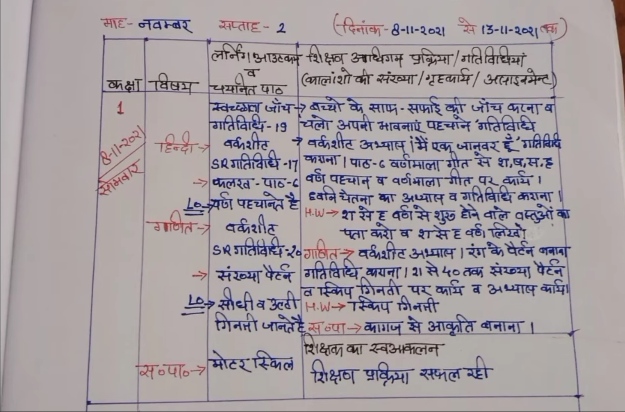 माह- नवम्बर सप्ताह - 2 (दिनांक - 8-11-2021 से 13-11-2021 तक)
कक्षा विषय लर्निंग आउटकम व चयनित पाठ शिक्षण अधिगम प्रक्रिया/गतिविधियां
(कालांशों की संख्या/गृहकार्य/असाइनमेंट)
1 स्वच्छता जाँच → बच्चों के साफ-सफाई की जाँच करना व
गतिविधि-19 चलो अपनी भावनाएं पहचाने गतिविधि
8-11-2021 सोमवार
हिन्दी → वर्कशीट → वर्कशीट अभ्यास में एक जानवर हूँ गतिविधि
SR गतिविधि-17 कराना। पाठ-6 वर्णमाला गीत से श,ष,स,ह
→ कलरव-पाठ-6 वर्ण पहचान व वर्णमाला गीत पर कार्य।
LO → वर्ण पहचानते है ध्वनि चेतना का अभ्यास व गतिविधि कराना।
H.W → श से ह वर्ण से शुरू होने वाले वस्तुओं का
गणित → वर्कशीट पता करो व श से ह वर्ण लिखो
SR गतिविधि-20 गणित → वर्कशीट अभ्यास। रंग के पैटर्न बनाना
→ संख्या पैटर्न गतिविधि कराना। से 40 तक संख्या पैटर्न
व स्किप गिनती पर कार्य व अभ्यास कार्य।
LO → सीधी व उल्टी H.W → स्किप गिनती
गिनती जानते है स०पा० → कागज से आकृति बनाना।
शिक्षक का स्वआकलन
स०पा० → मोटर स्किल शिक्षण प्रक्रिया सफल रही